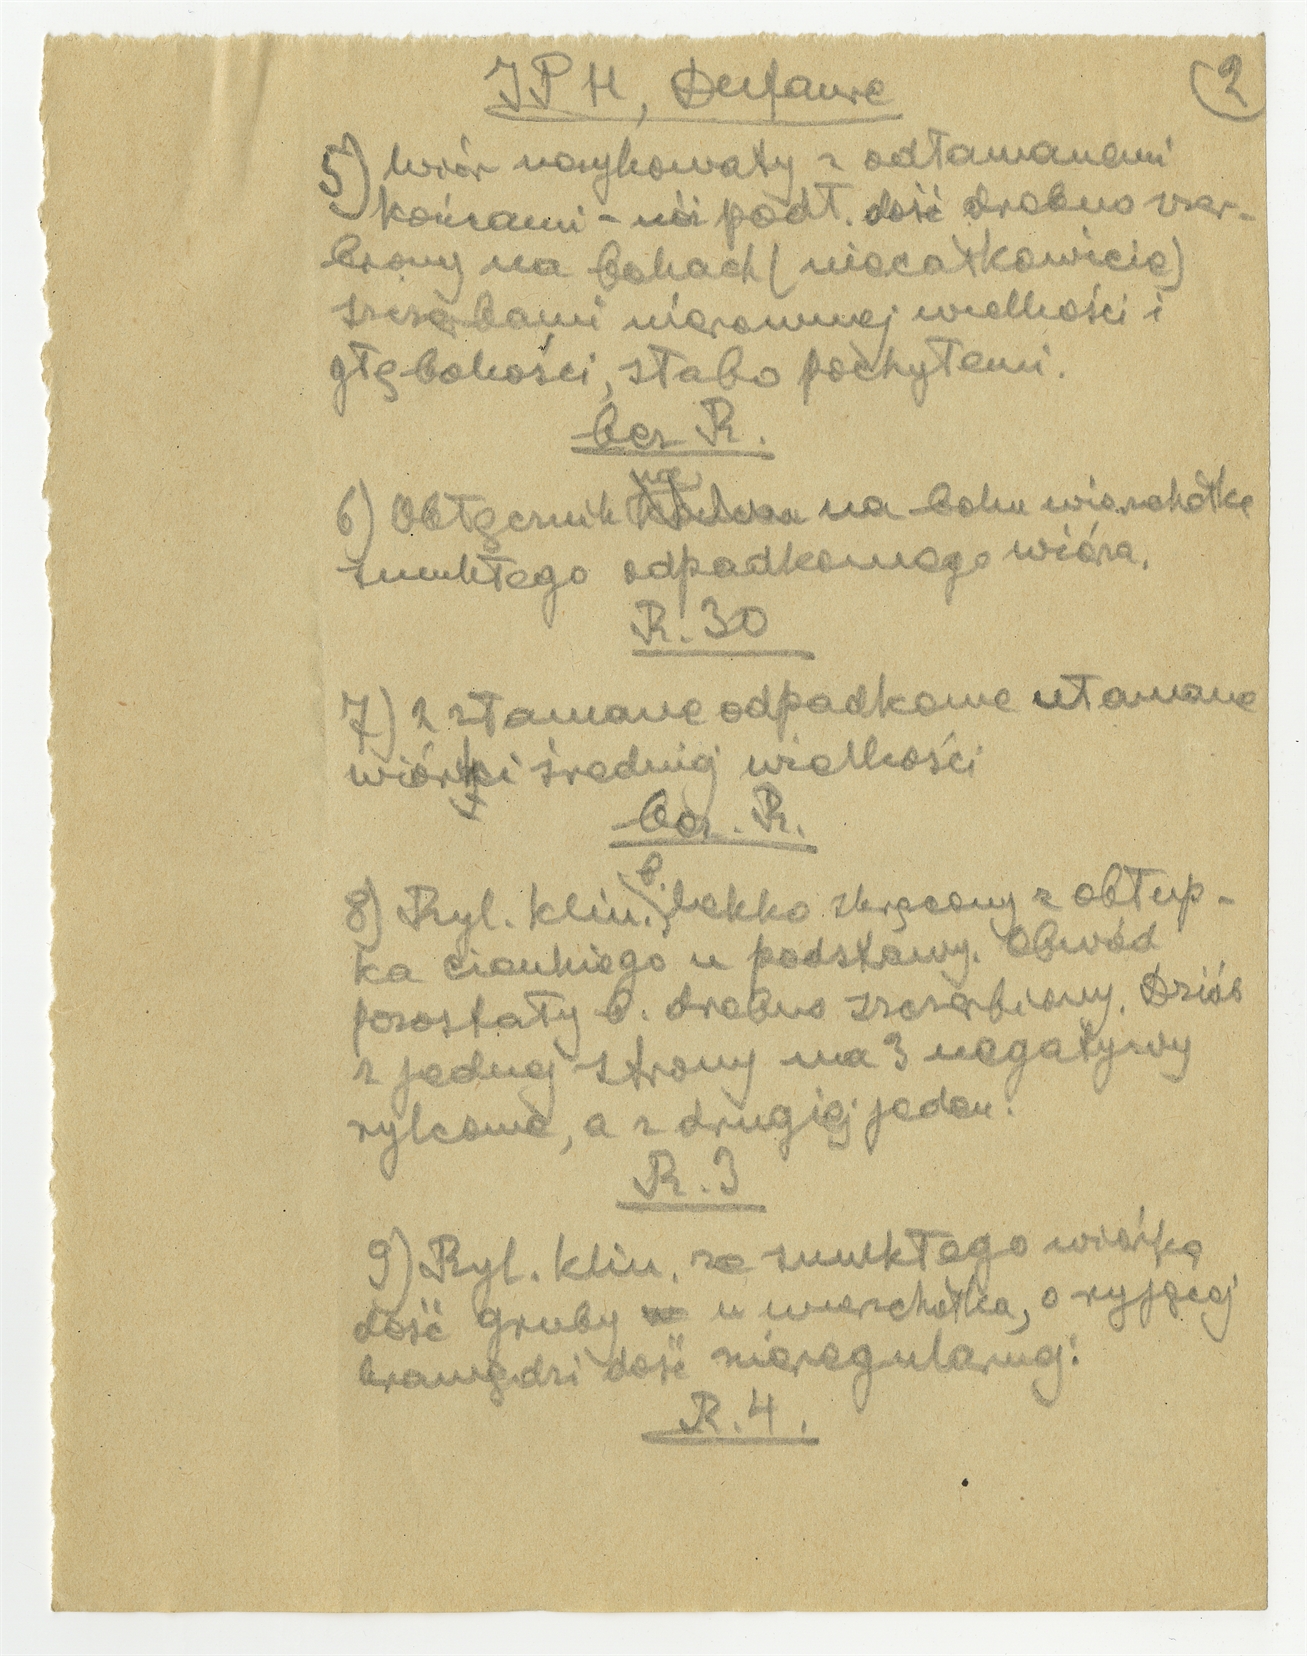 JPH, Dufaure
2
5) Wiór nożykowaty z odłamanemi
końcami - nói podł. dość drobno szer-
biony na bokach (niecałkowicie)
szczerbami nierównej wielkości i
głębokości, słabo pochyłemi.
bez R.
6) Obłęcznik na boku wierzchołka
smukłego odpadkowego wióra.
R. 30
7) 2 złamane odpadkowe ułamane
wiórki średniej wielkości
bez. R.
8) Ryl. klin. b. lekko skręcony z obłup-
ka cienkiego u podstawy. Obwód
pozostały b. drobno szczerbiony. Dziób
z jednej strony ma 3 negatywy
rylcowe, a z drugiej jeden.
R. 3
9) Ryl. klin. ze smukłego wiórka
dość gruby u wierzchołka, o ryjącej
krawędzi dość nieregularnej.
R. 4.